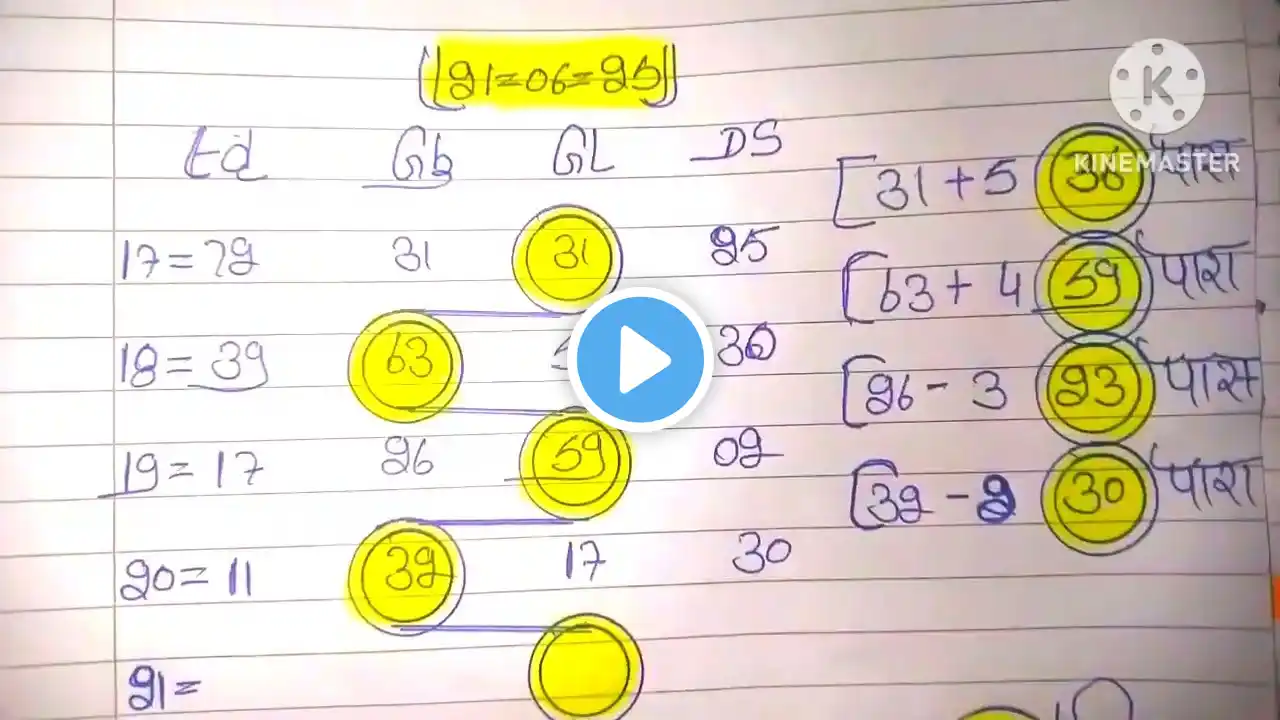 [21=06=25]
fd Gb GL DS
17=72 31 31 25
18=39 63 30
19=17 26 59 02
20=11 32 17 30
21=
KINEMASTER
[31+5 36 पास
[63+4 59 पास
[26-3 23 पास
[32-2 30 पास